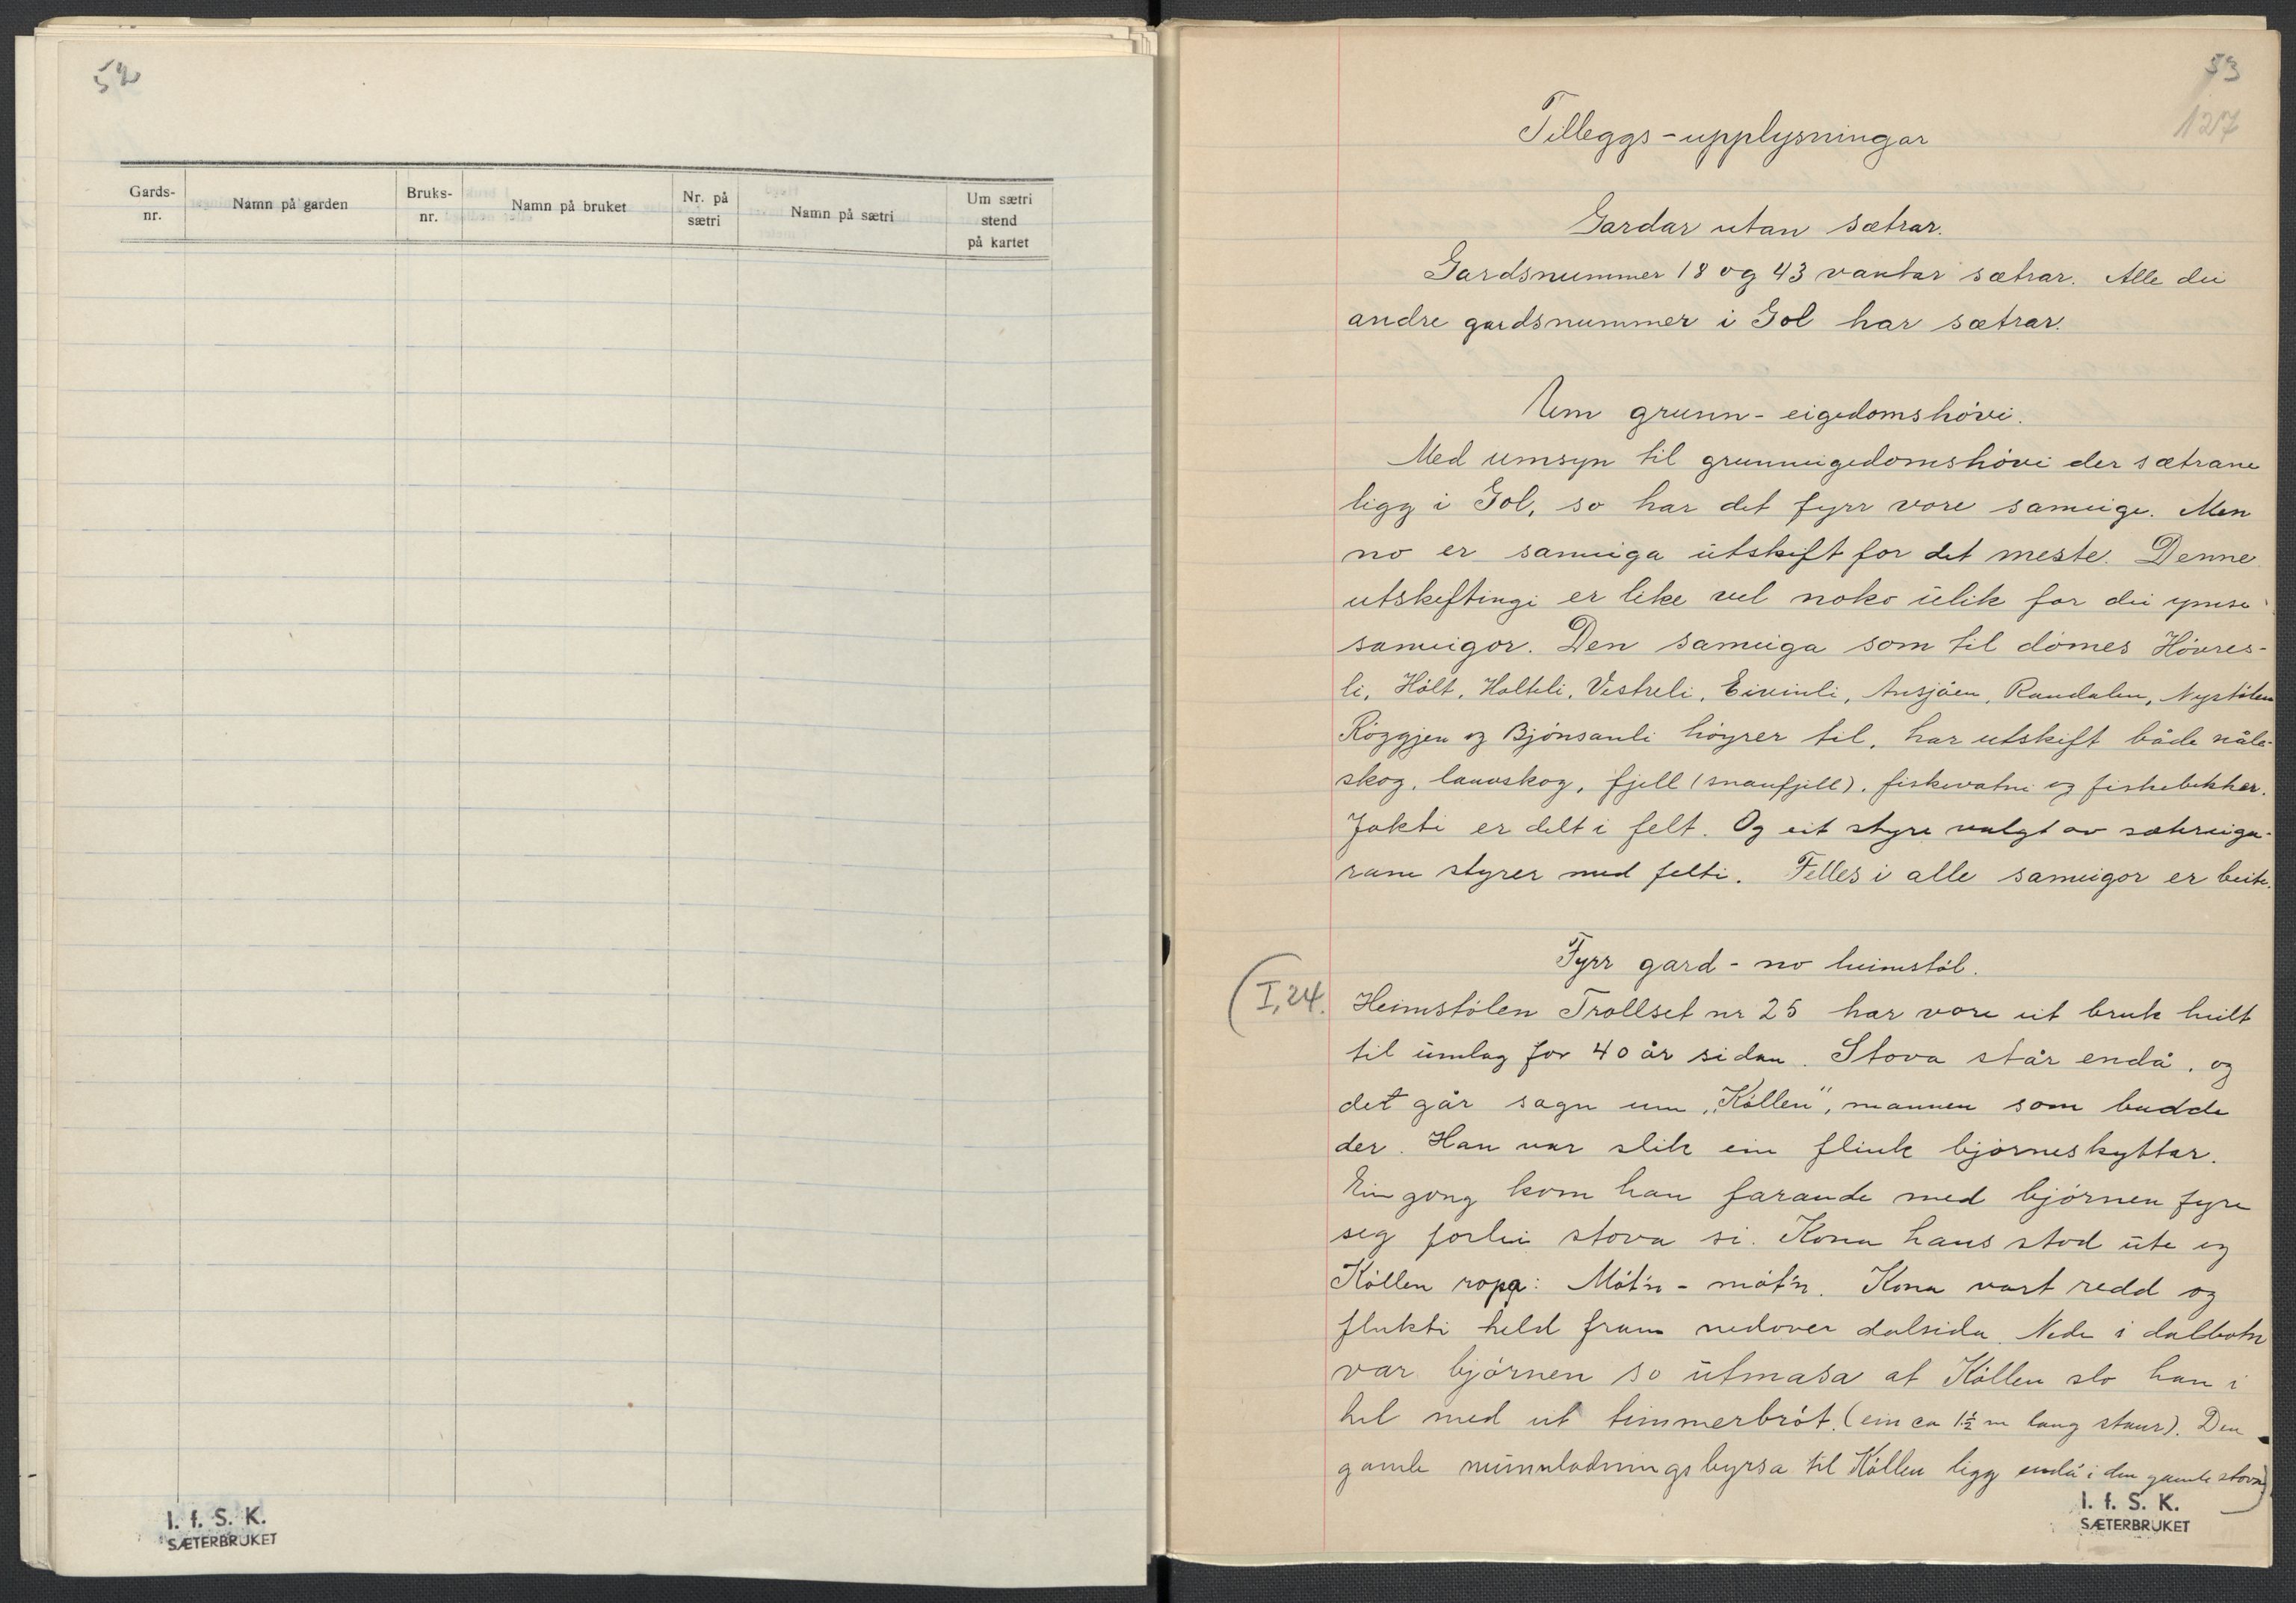 52
Gards-
nr.
Namn på garden
Bruks-
nr.
Namn på bruket
Nr. på
sætri
Namn på sætri
Um sætri
stend
på kartet
I. f. S. K.
SÆTERBRUKET
53
127
Tilleggs-upplysningar
Gardar utan sætrar.
Gardsnummer 18 og 43 vantar sætrar. Alle dei
andre gardsnummer i Gol har sætrar.
Um grunn-eigedomshövi.
Med umsyn til grunneigedomshövi der sætrane
ligg i Gol, so har det fyrr vore sameige. Men
no er sameiga utskift for det meste. Denne
utskiftingi er like vel noko ulik for dei ymse
sameigor. Den sameiga som til dömes Hövres-
li, Hólt, Holteli, Vestreli, Eivinli, Ansjöen, Raudalen, Nystölen
Röggjen og Bjönsanli höyrer til, har utskift både nåle-
skog, lauvskog, fjell (snaufjell), fiskevatni og fiskebekker.
Jakti er delt i felt. Og eit styre valgt av sætreiga-
rane styrer med felti. Felles i alle sameigor er beite.
Fyrr gard - no heimstöl.
(I, 24.
Heimstölen Trollset nr 25 har vore eit bruk heilt
til umlag for 40 år sidan. Stova står endå, og
det går sogn um „Kóllen", mannen som budde
der. Han var slik ein flink björneskyttar.
Ein gong kom han farande med björnen fyre
seg forbi stova si. Kona hans stod ute og
Kóllen ropa: Mót'n - mót'n. Kona vart redd og
flukti held fram nedover dalsida. Nede i dalbotn
var björnen so utmasa at Kóllen slo han i
hel med eit timmerbrót. (ein ca 1½ m lang staur). Den
gamle munnladningsbyrsa til Kóllen ligg endå i den gamle stova)
I. f. S. K.
SÆTERBRUKET